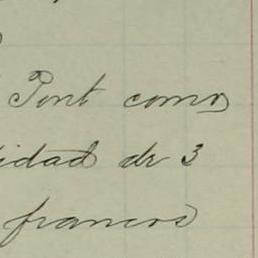 Pont como
idad de 3
francos